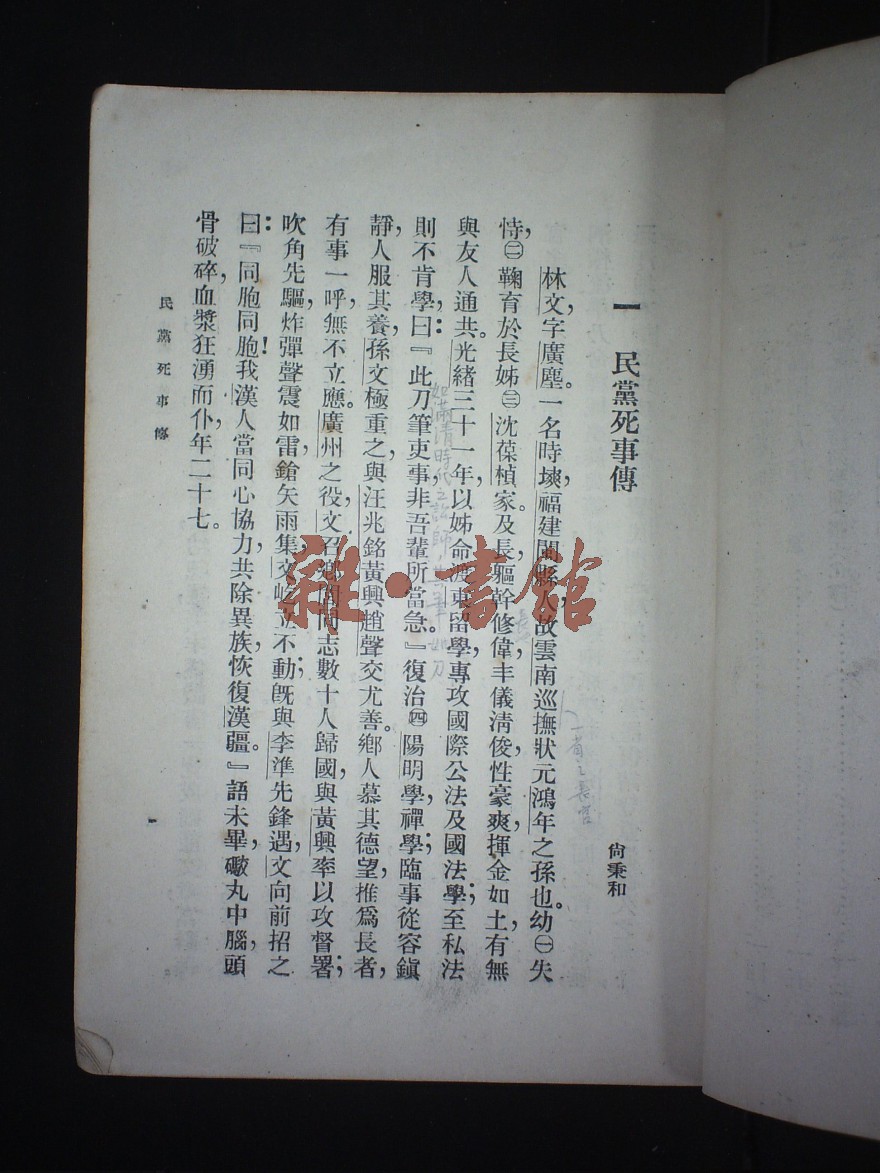 一 民黨死事傳
尙秉和
林文，字廣塵。一名時塽，福建閩縣人，故雲南巡撫狀元鴻年之孫也。幼㊀失
恃，㊁鞠育於長姊㊂沈葆楨家。及長，軀幹修偉，丰儀淸俊，性豪爽，揮金如土，有無
與友人通共。光緖三十一年，以姊命渡東留學，專攻國際公法及國法學；至私法
則不肯學，曰：『此刀筆吏事，非吾輩所當急。』復治㊃陽明學，禪學；臨事從容鎭
靜，人服其養，孫文極重之，與汪兆銘黃興趙聲交尤善。鄉人慕其德望，推爲長者，
有事一呼，無不立應。廣州之役，文召鄉閭同志數十人歸國，與黃興率以攻督署；
吹角先驅，炸彈聲震如雷，鎗矢雨集，文屹立不動；旣與李準先鋒遇，文向前招之
曰：『同胞同胞！我漢人當同心協力，共除異族，恢復漢疆。』語未畢，礮丸中腦，頭
骨破碎，血漿狂湧而仆，年二十七。
如滿清時代之訟師，其筆如刀
一省之長官
民黨死事傳
一
雜·書館